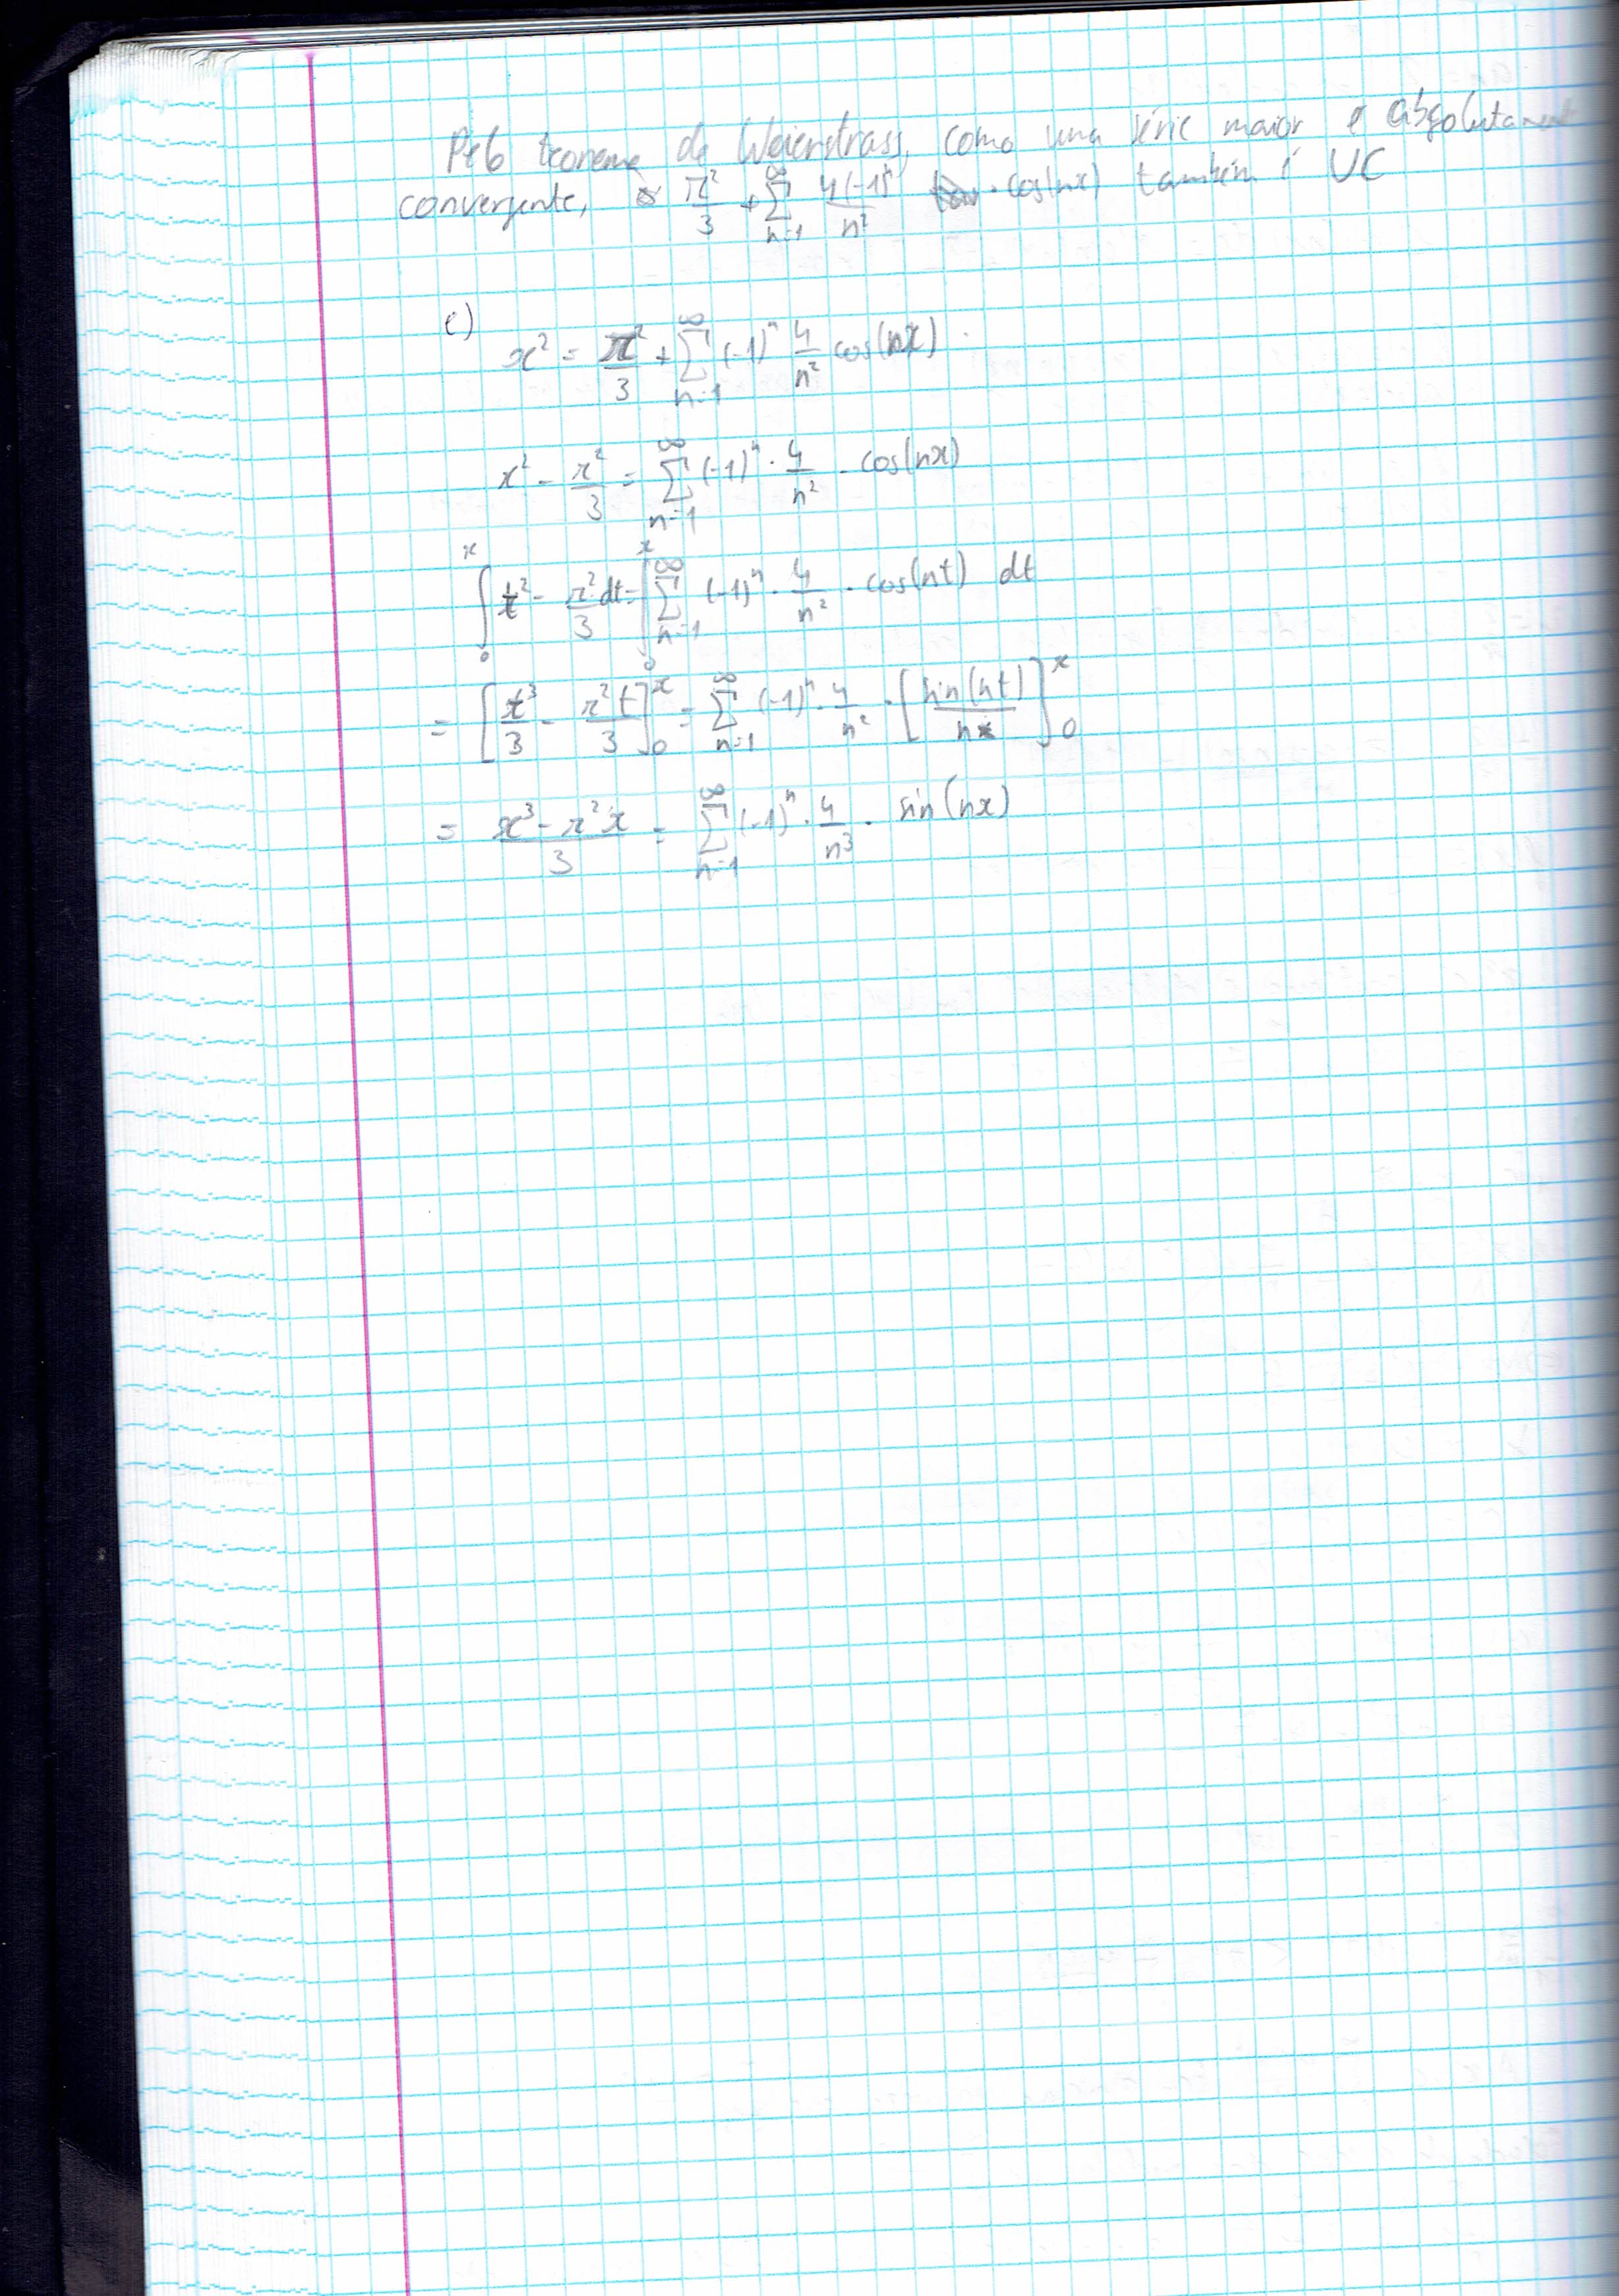 Pelo teorema de Weierstrass, como uma série maior é absolutament
convergente, π²/3 + ∑_{n=1}^{∞} 4(-1)^n/n² · cos(nx) também é UC
c)
x² = π²/3 + ∑_{n=1}^{∞} (-1)^n 4/n² cos(nx)
x² - π²/3 = ∑_{n=1}^{∞} (-1)^n · 4/n² · cos(nx)
∫_0^x t² - π²/3 dt = ∫_0^x ∑_{n=1}^{∞} (-1)^n · 4/n² · cos(nt) dt
= [t³/3 - π²t/3]_0^x = ∑_{n=1}^{∞} (-1)^n · 4/n² · [sin(nt)/n]_0^x
= (x³ - π²x)/3 = ∑_{n=1}^{∞} (-1)^n · 4/n³ · sin(nx)